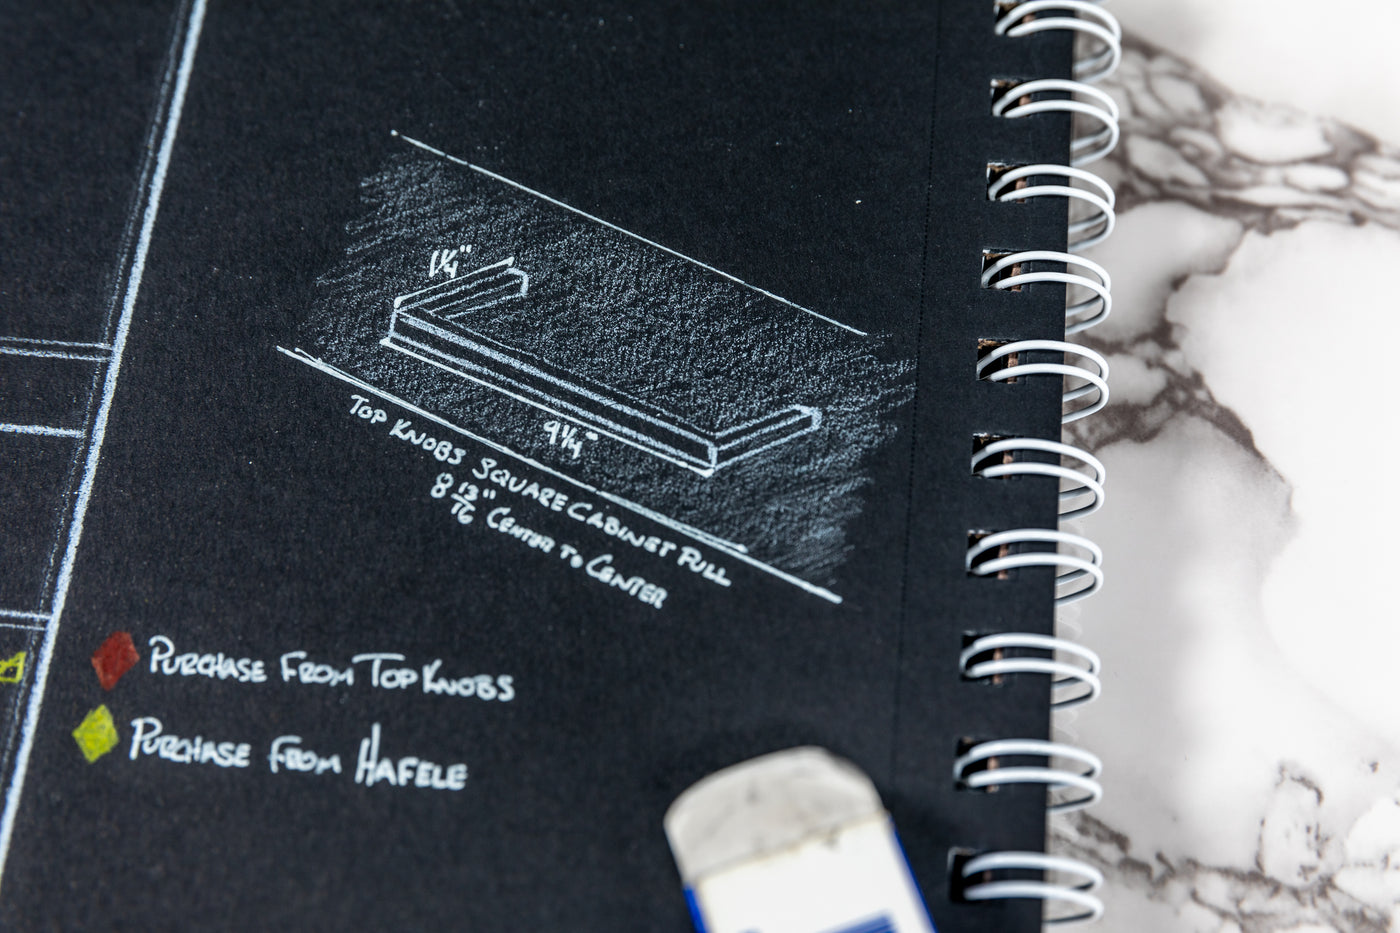 1 1/4"
9 1/4"
TOP KNOBS SQUARE CABINET PULL
8 13/16" CENTER TO CENTER
PURCHASE FROM TOP KNOBS
PURCHASE FROM HAFELE